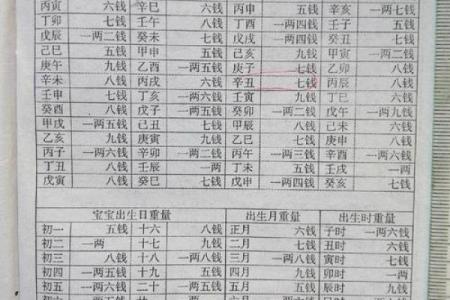 丙寅 六钱 辛巳 六钱 丙申 五钱 辛亥 一两七钱
丁卯 七钱 壬午 八钱 丁酉 一两四钱 壬子 五钱
戊辰 一两二钱 癸未 七钱 戊戌 一两四钱 癸丑 七钱
己巳 五钱 甲申 五钱 己亥 九钱 甲寅 一两二钱
庚午 九钱 乙酉 一两五钱 庚子 七钱 乙卯 八钱
辛未 八钱 丙戌 六钱 辛丑 七钱 丙辰 八钱
壬申 七钱 丁亥 一两六钱 壬寅 九钱 丁巳 六钱
癸酉 八钱 戊子 一两五钱 癸卯 一两二钱 戊午 一两九钱
甲戌 一两五钱 己丑 七钱 甲辰 八钱 己未 六钱
乙亥 九钱 庚寅 九钱 乙巳 七钱 庚申 八钱
丙子 一两六钱 辛卯 一两二钱 丙午 一两三钱 辛酉 一两六钱
丁丑 八钱 壬辰 一两 丁未 五钱 壬戌 一两
戊寅 八钱 癸巳 七钱 戊申 一两四钱 癸亥 七钱
宝宝出生日重量 出生月重量 出生时重量
初一 五钱 十六 八钱 正月 六钱 子时 一两六钱
初二 一两 十七 九钱 二月 七钱 丑时 六钱
初三 八钱 十八 一两八钱 三月 一两八钱 寅时 七钱
初四 一两五钱 十九 五钱 四月 九钱 卯时 一两
初五 一两六钱 二十 一两五钱 五月 五钱 辰时 九钱